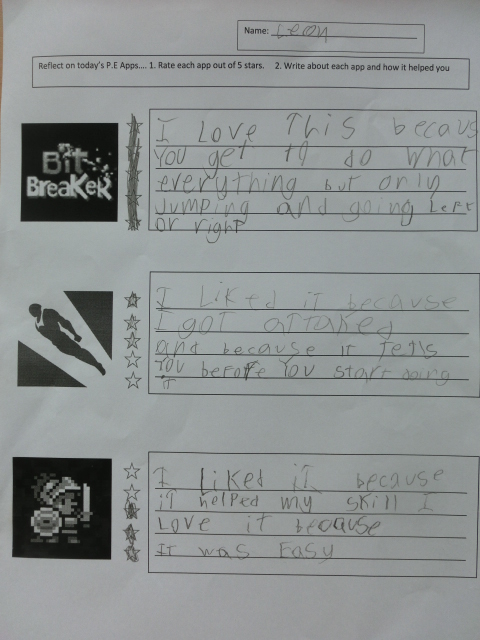 Name: Leon
Reflect on today's P.E Apps.... 1. Rate each app out of 5 stars. 2. Write about each app and how it helped you
Bit
BreaKeR
I Love This becaus
You get to do what
everything but only
Jumping and going Left
or right
I Liked it because
I got attaked
and because it Tells
You before You start doing
it
I liked iT because
iT helped my skill I
Love it because
IT was Easy